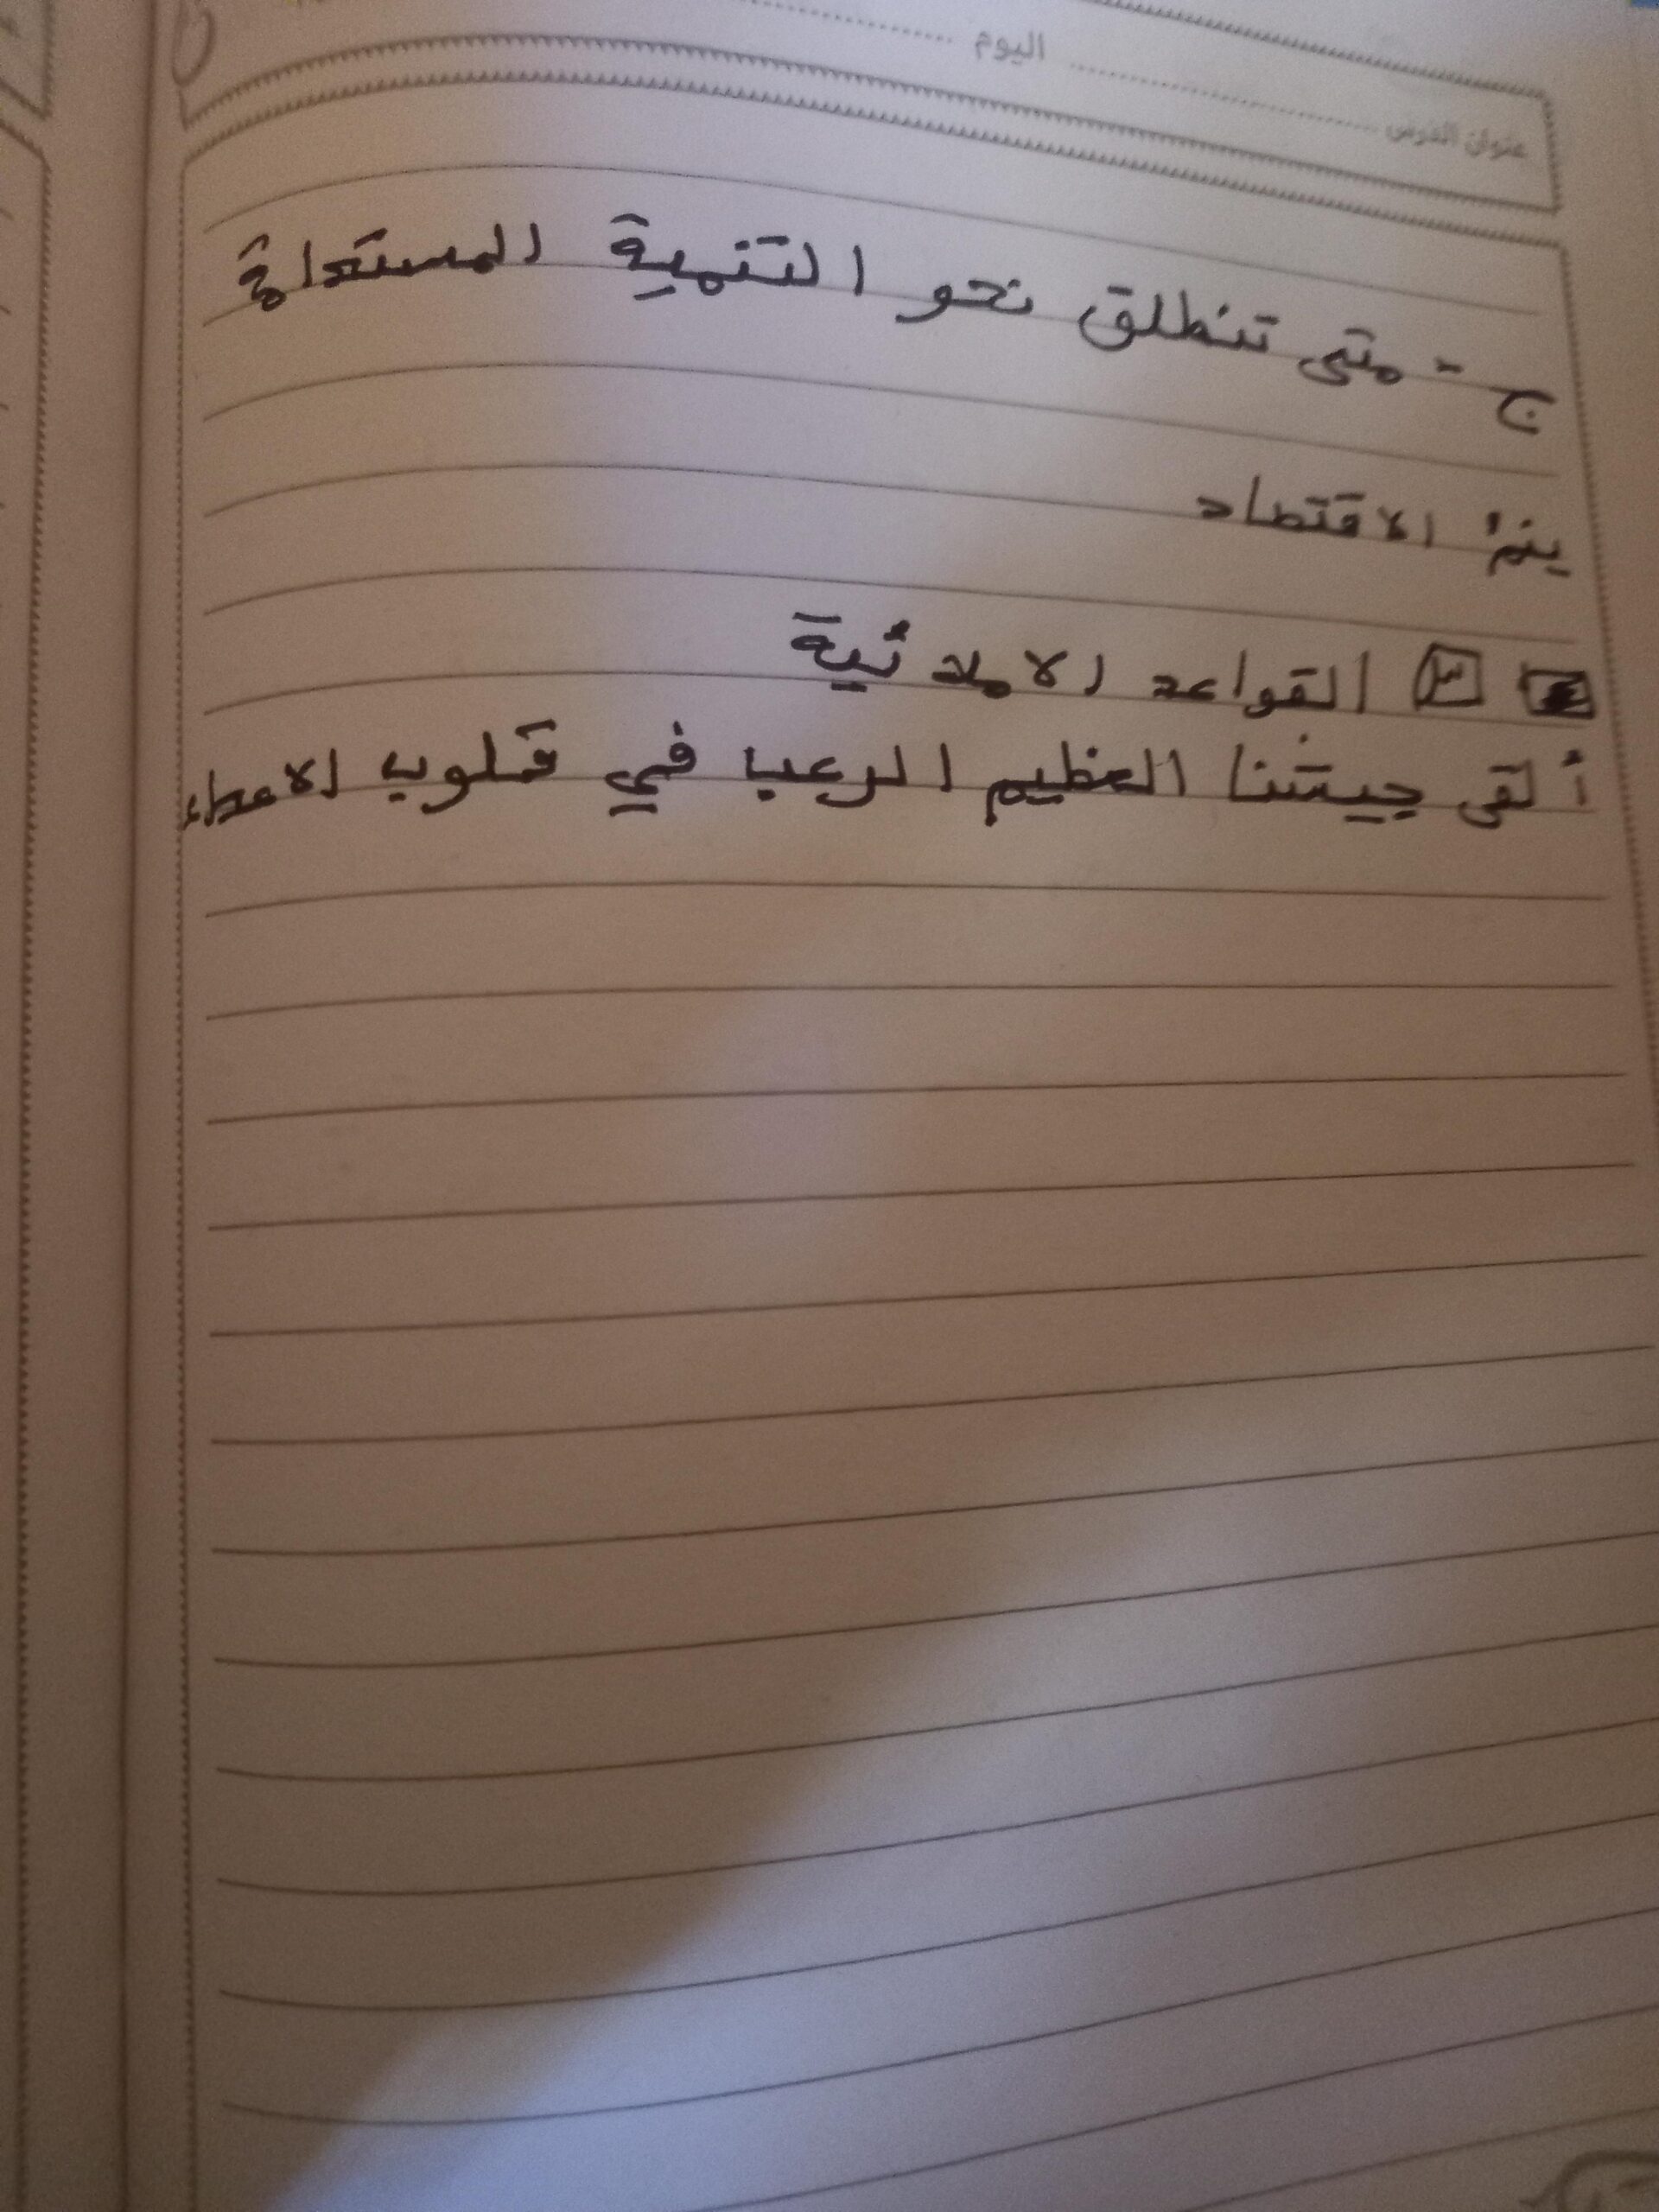 اليوم
عنوان الدرس
ج - متى تنطلق نحو التنمية المستدامة
ينمُ الاقتصاد
٣ القواعد الاملائية
ألقى جيشنا العظيم الرعب في قلوب الاعداء